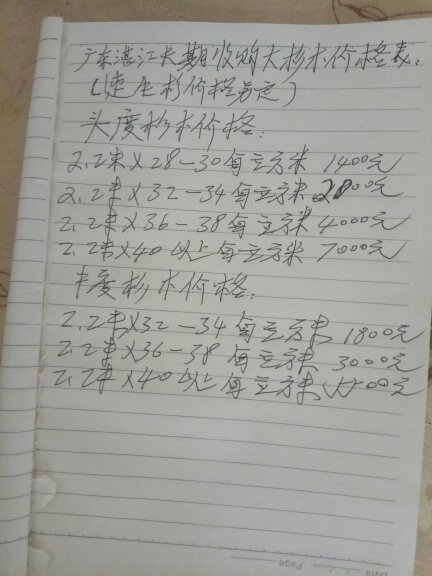 广东湛江长期收购大杉木价格表:
(速生杉价格另定)
头度杉木价格:
2.2米X28-30每立方米 1400元
2.2米X32-34每立方米 2800元
2.2米X36-38每立方米 4000元
2.2米X40以上每立方米 7000元
杉木价格:
2.2米X32-34每立方米 1800元
2.2米X36-38每立方米 3000元
2.2米X40以上每立方米
Date
Page